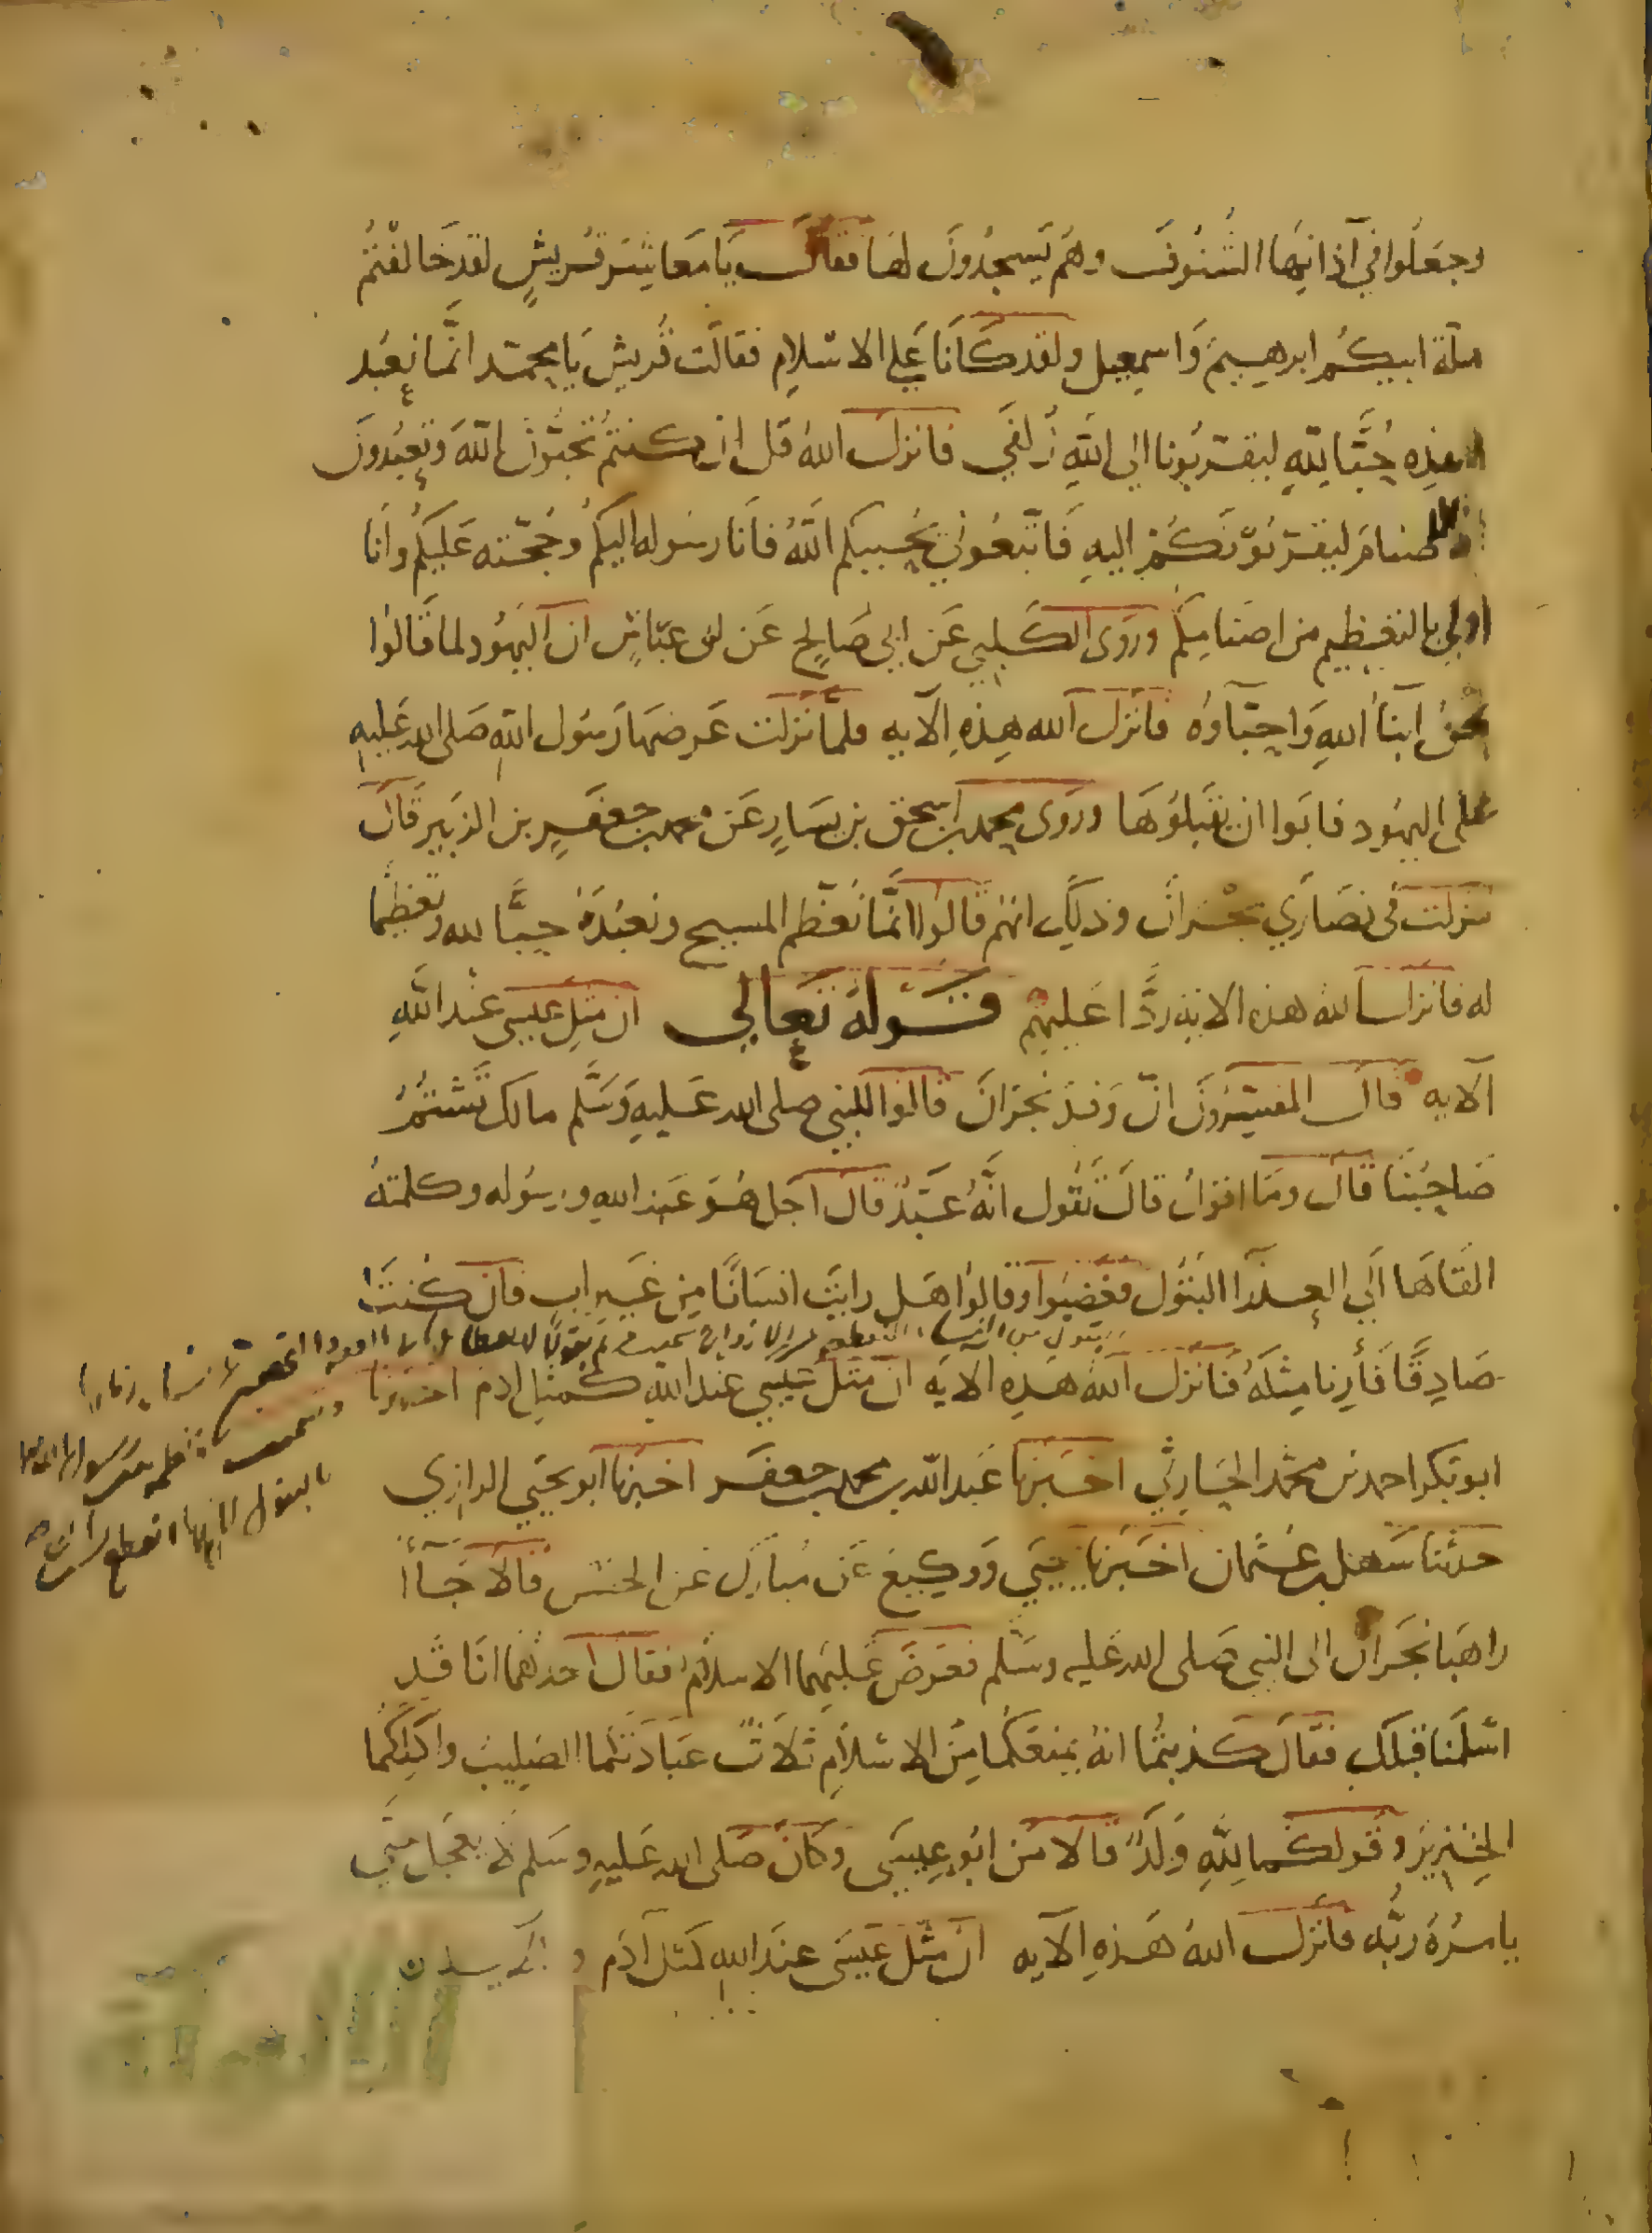 وجعَلوا في آذانِهَا الشنُوفَ وهُم يَسجدُونَ لهَا فقالَ يَا مَعَاشِرَ قُريشٍ لقد خَالفتُم
ملّة ابيكُم ابرهيم وَاسمعيل ولقد كانَا عَلى الاسْلام فقالَت قُريش يَا محمّد انَّما نعبُد
هذِه حُبًّا للهِ ليقرّبُونا الى اللهِ زُلفَى فانزل اللهُ قل ان كنتمُ تحبّونَ اللهَ وتعبُدونَ
الاصنامَ ليقرّبُوّنكُم اليهِ فَاتّبعُوني يُحببكم اللهُ فانَا رسُوله اليكُم وحُجّته عَليكُم وانَا
اولى بالتعظيم من اصنامِكُم ورَوى الكَلبي عَن ابي صَالح عَن ابن عبّاسٍ ان اليَهُود لما قَالوا
نحنُ ابنآُ اللهِ وَاحِبّآوُه فانزل الله هذِه الآيه فلمّا نَزلت عَرضهَا رَسُول اللهِ صَلى الله عَليهِ
على اليهُود فابَوا ان يقبَلوُهَا ورَوى محمد بن اسحق بن يسَارٍ عَن محمد بن جعفَرٍ بن الزبير قَالَ
نزلت في نصَارَي نجْرانَ وذلكَ انهم قالوا انّمَا نُعَظّم المسيح ونعبُدَهُ حُبًّا لله وتعظيما
له فانزل الله هذه الايه رَدًّا عَليهم قَوْلهُ تعَالي ان مثل عيسى عنْد اللهِ
الآيه قالَ المفسّرُونَ انّ وَفدَ نجرانَ قالوا للنبي صلى الله عَليهِ وَسَلَّم مالكَ تَشتمُ
صَاحِبُنَا قَالَ ومَا اقولُ قالَ تَقُول انَّهُ عَبْدٌ قال اجَل هُوَ عَبد اللهِ ورسُوله وكلمتهُ
القَاهَا اِلَى العذرآ البتُول فغَضبُوا وقالوا هَل رايتَ انسَانًا مِن غَير ابٍ فان كُنتَ
صَادِقًا فَأَرِنا مِثلَهُ فَانزل اللهُ هَذِه الايَه ان مَثَلَ عيسى عند اللهِ كَمثلِ ادم اخبرنا
ابو بَكر احمد بن محمّد الحَارثي اخبَرنا عَبد الله بن محمد بن جعفَر اخبرنا ابو يحيَى الرازي
حدثنا سَهل بن عُثمان اخبَرنا يحيَى وَوكيعٌ عَن مُبارَك عَن الحسَن قالا جَآءَ
راهبَا نجَرانَ الى النبي صَلى الله عَليه وسَلّم فعَرضَ عَليهِما الاسْلامَ فقالَ احدهُما انَا قد
اسْلَمنَا قبلكَ فقالَ كَذبتُما انهُ يمنعكُما مِنَ الاسْلام ثلاثٌ عبَادَتكمَا الصَليبَ وَاكلكُما
الخِنزيرَ وقولكُما للهِ وَلَدٌ قَالا مَن ابُو عيسَى وكَانَ صَلى الله عَليهِ وسَلم لا يعجَل حتى
يامُرَهُ ربُّه فانزل اللهُ هَذهِ الآيه ان مَثل عيسَى عندَ اللهِ كمَثل آدَم